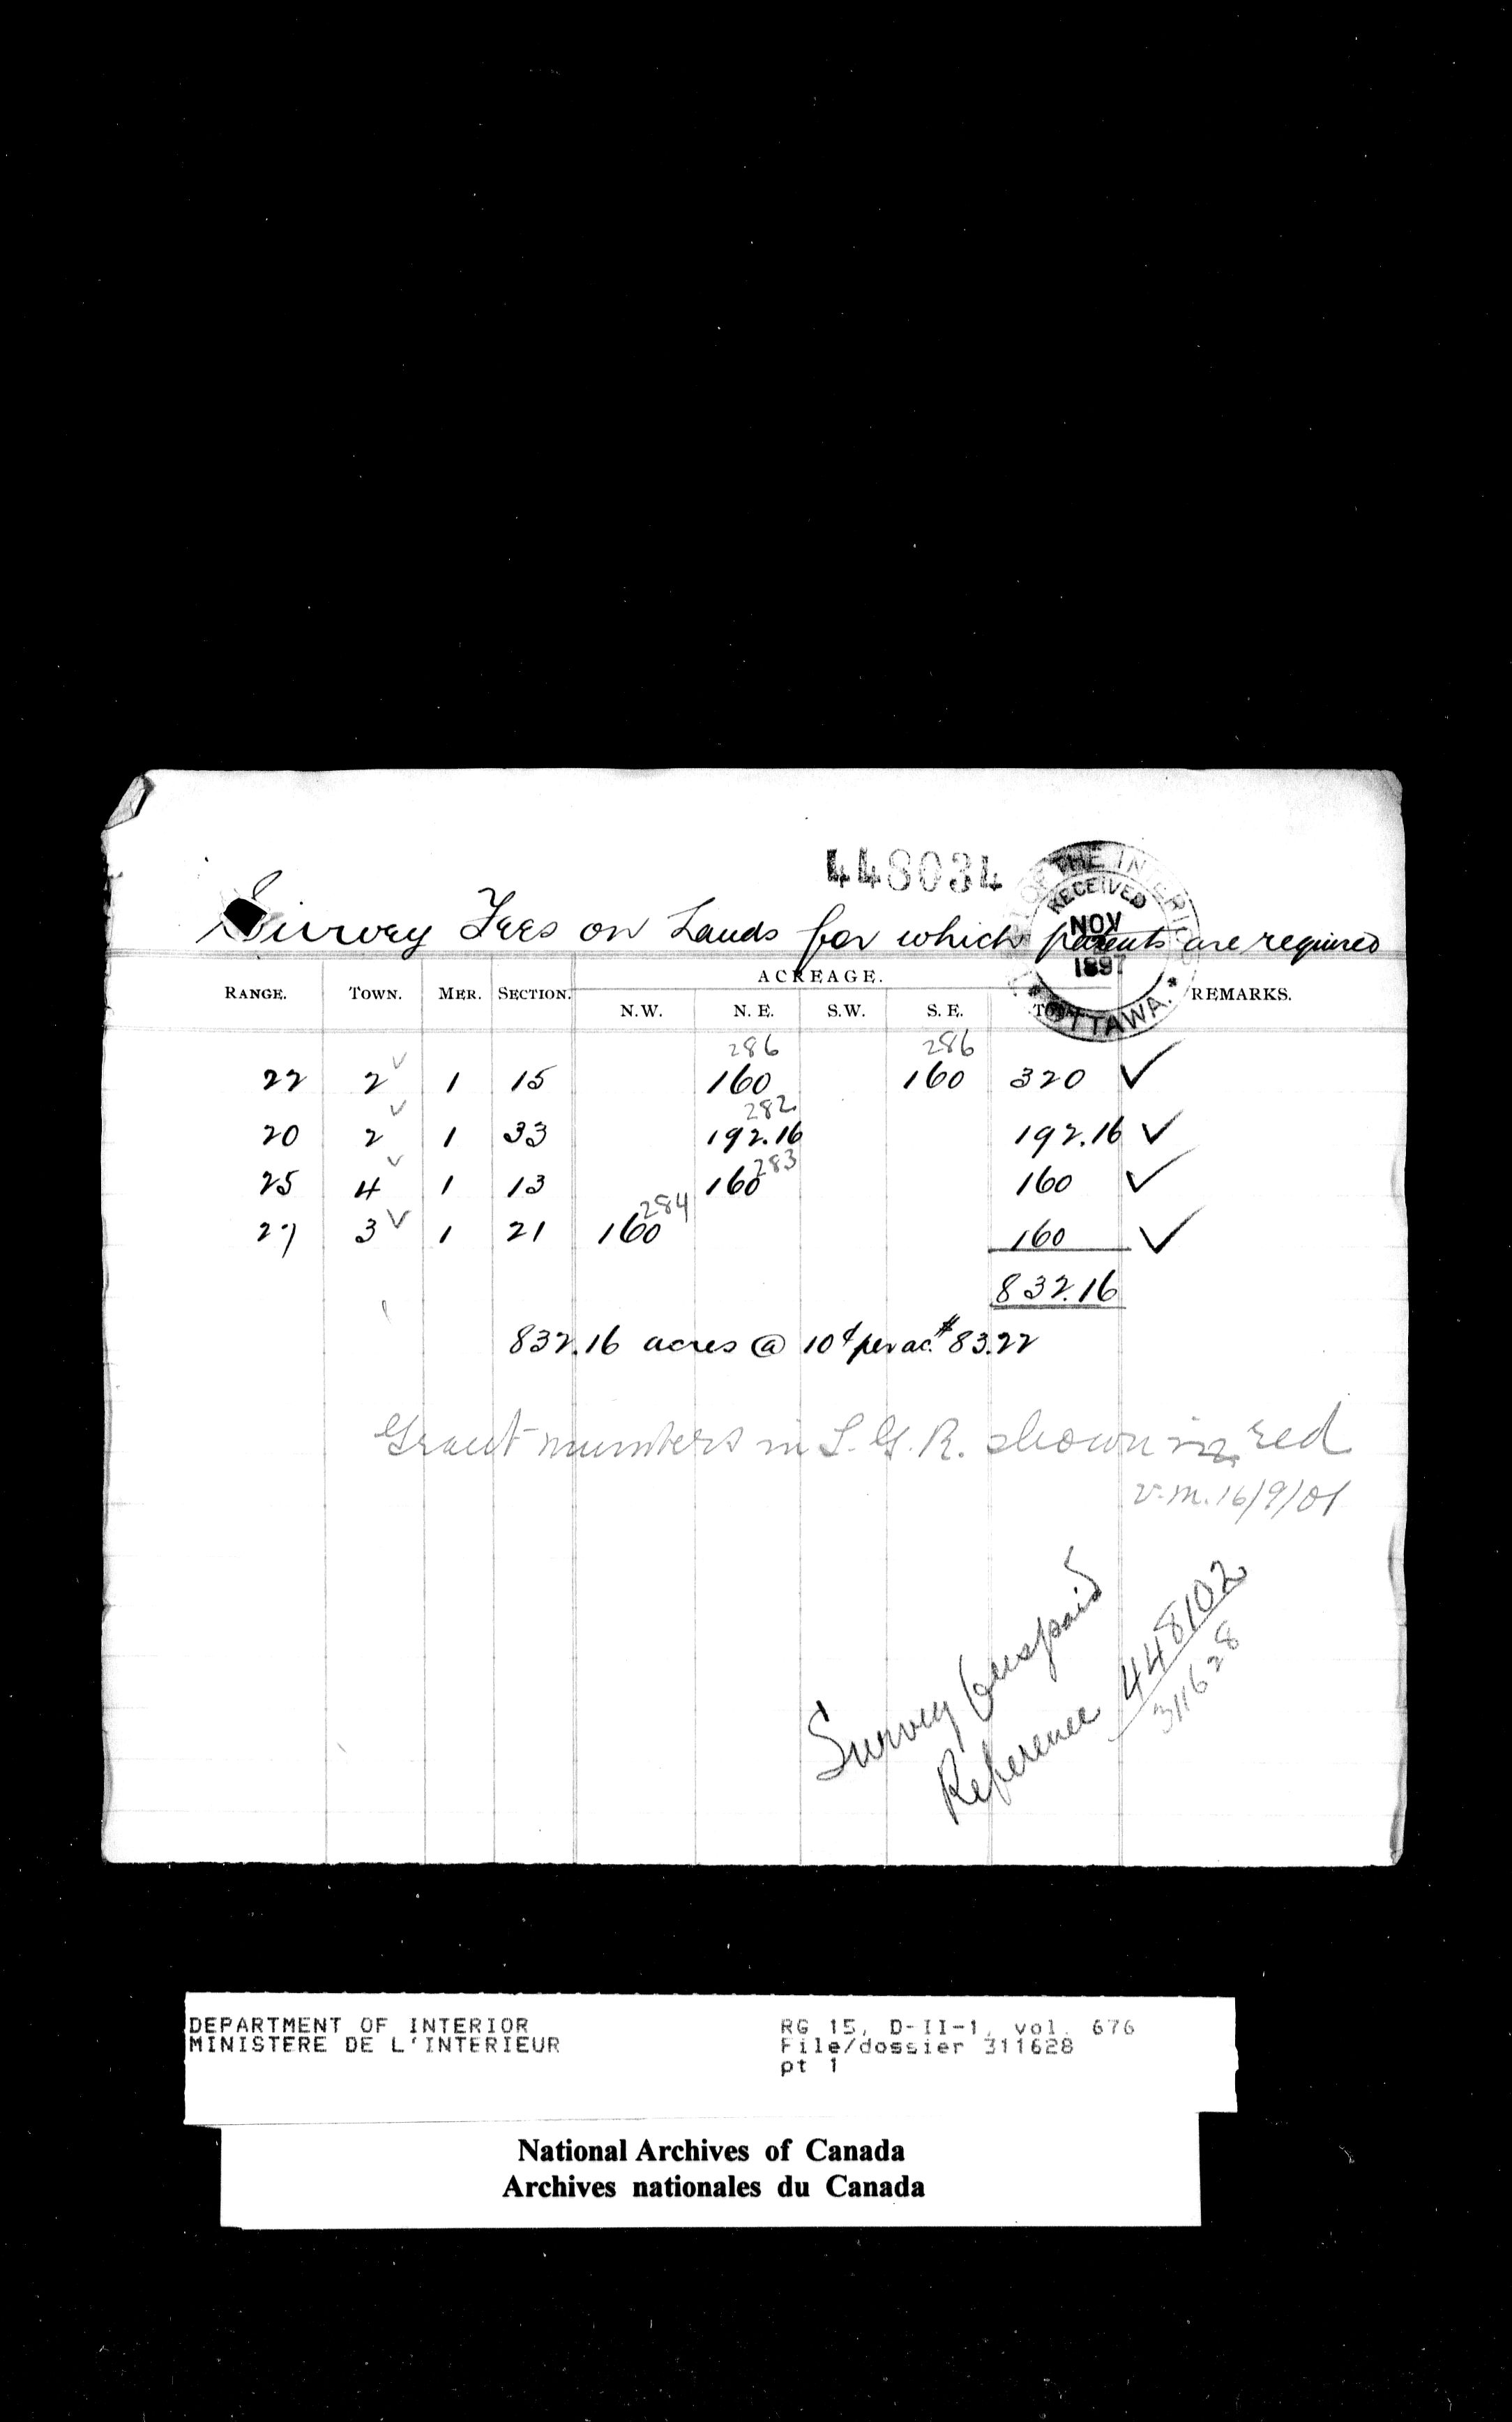 448034
DEPT OF THE INTERIOR
RECEIVED
NOV
1897
* OTTAWA. *
Survey Fees on Lands for which patents are required
ACREAGE.
RANGE. TOWN. MER. SECTION. N.W. N.E. S.W. S.E. TOTAL REMARKS.
286 286
22 2 ✓ 1 15 160 160 320 ✓
282
20 2 ✓ 1 33 192.16 192.16 ✓
283
25 4 ✓ 1 13 160 160 ✓
284
27 3 ✓ 1 21 160 160 ✓
832.16
832.16 acres @ 10¢ per ac. $83.22
Grant numbers in L.G.R. shown in red
v.m. 16/9/01
Survey unpaid
Reference 448102
311628
DEPARTMENT OF INTERIOR RG 15, D-II-1, vol. 676
MINISTERE DE L'INTERIEUR File/dossier 311628
pt 1
National Archives of Canada
Archives nationales du Canada